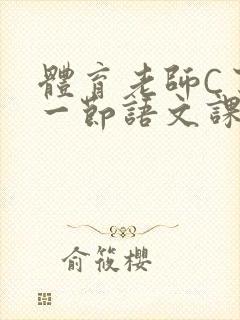 體育老師C
一節語文課
俞筱櫻